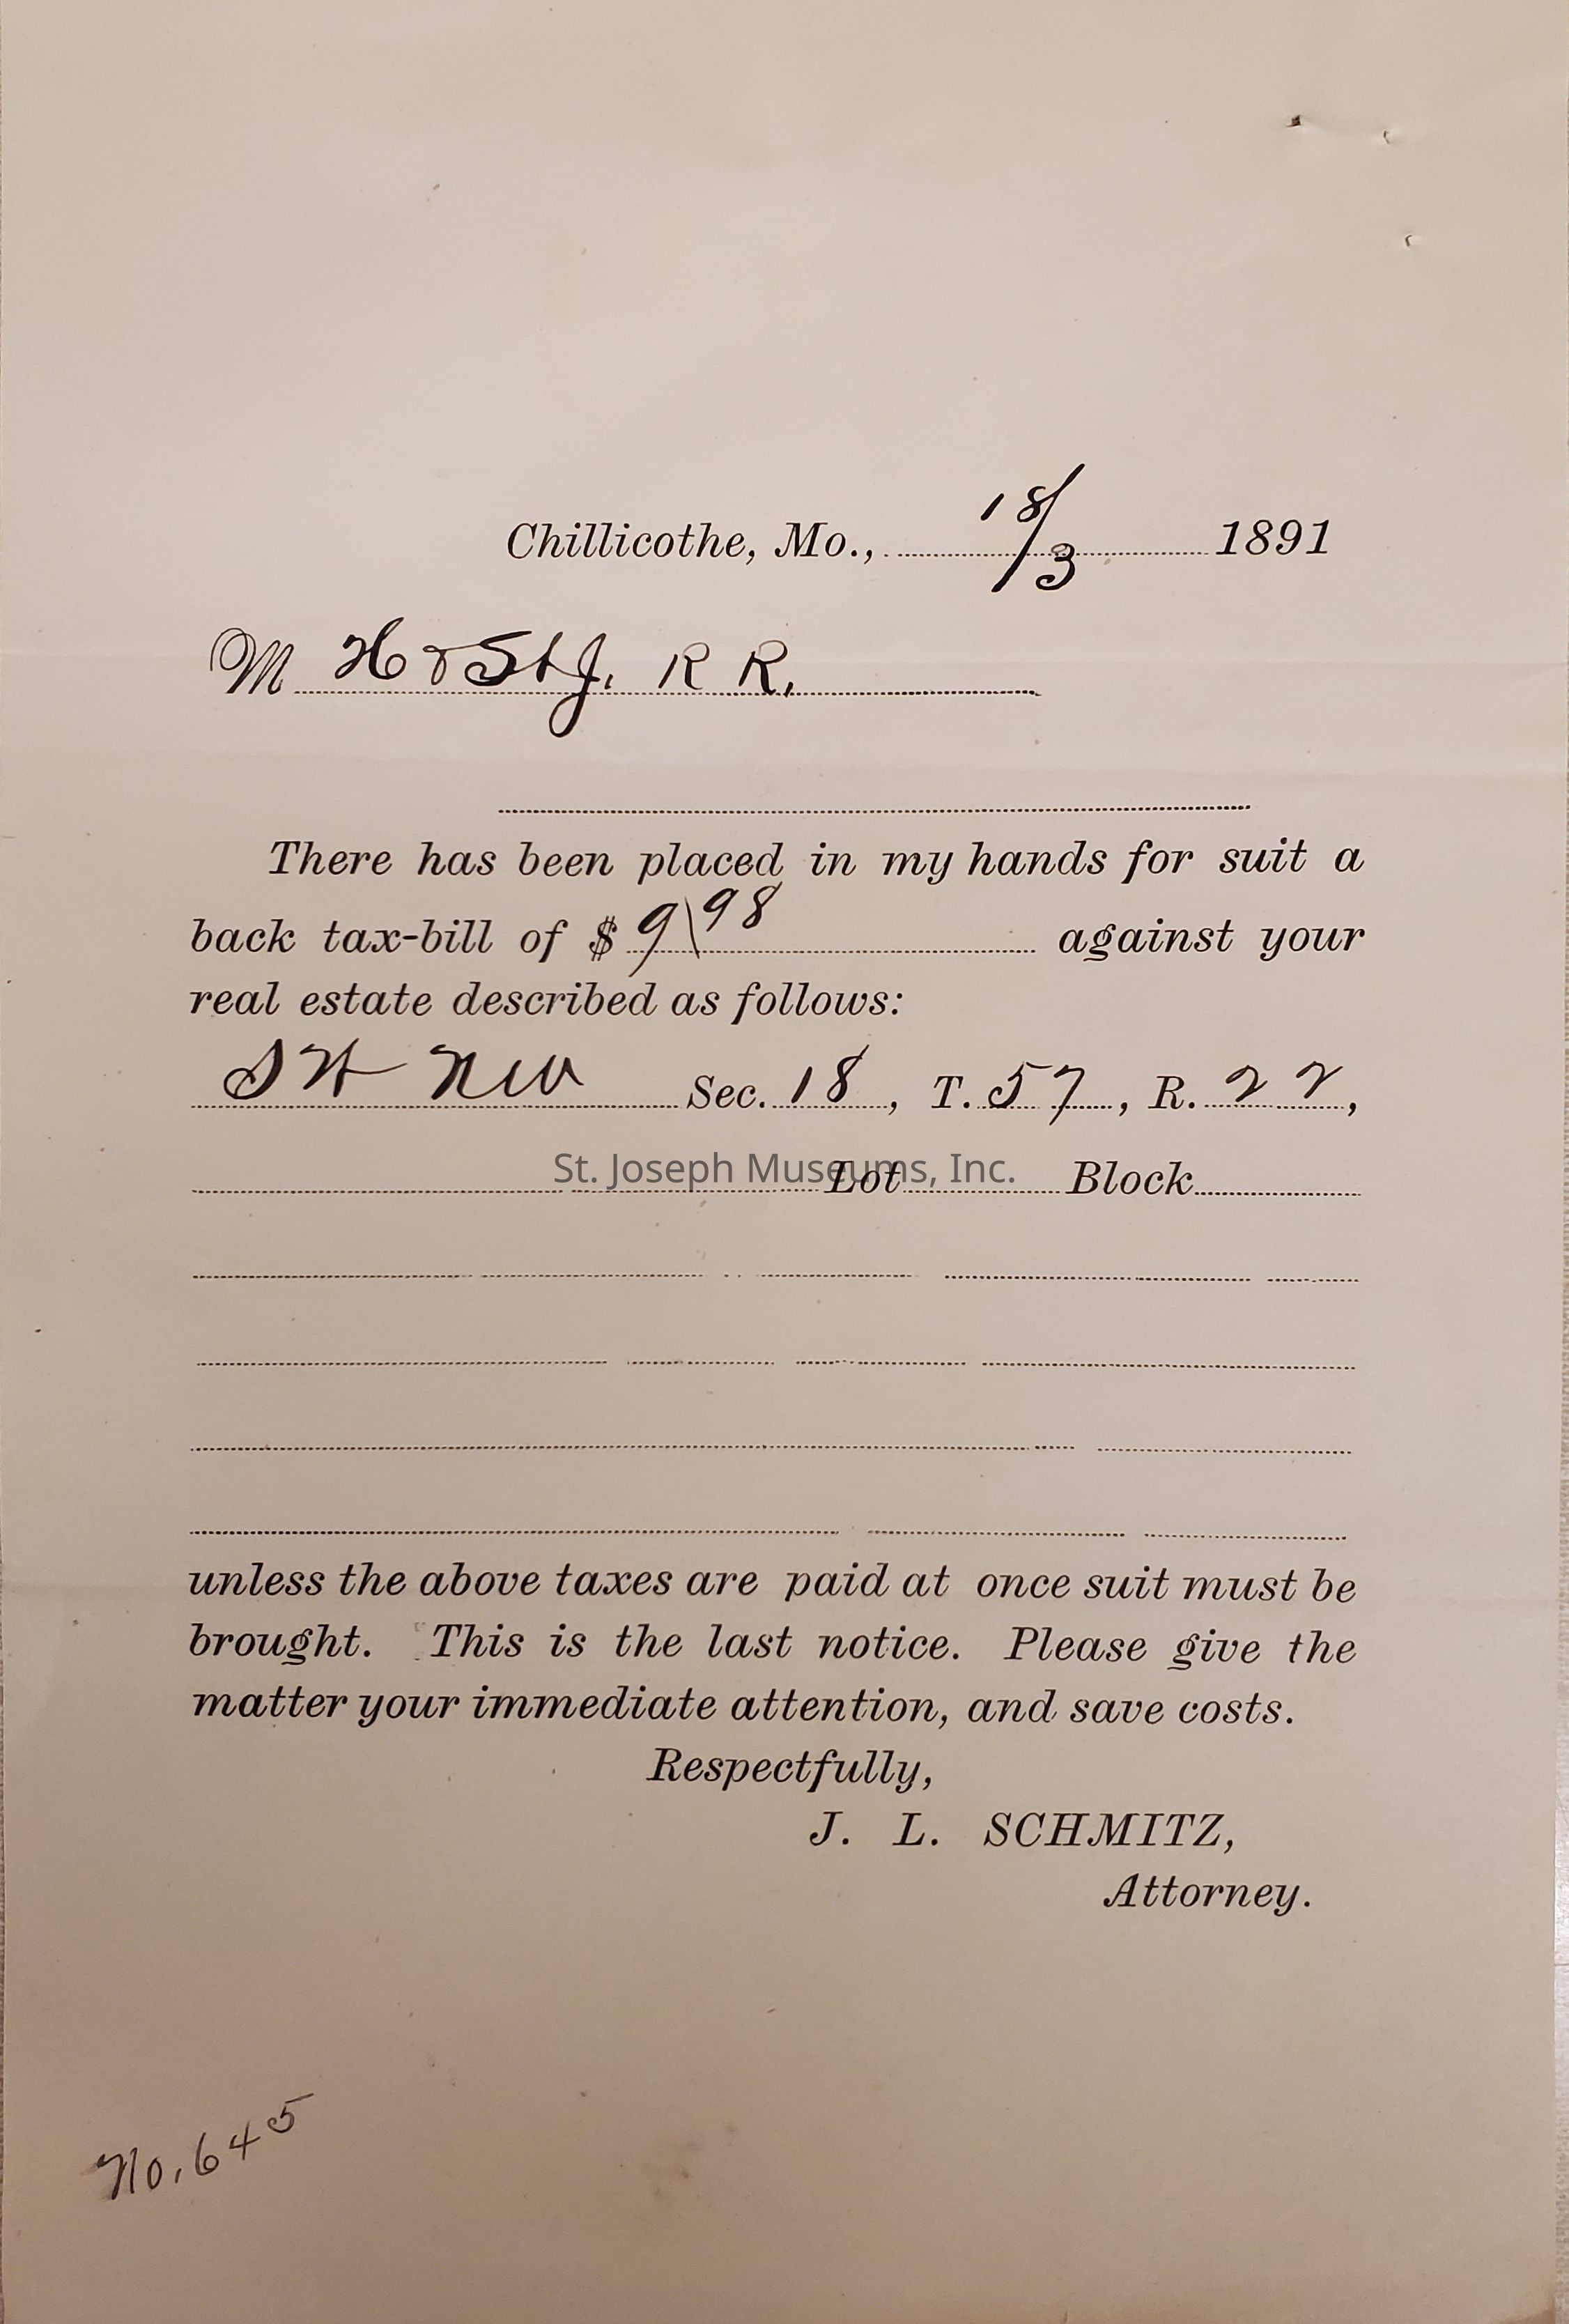 Chillicothe, Mo., 18/3 1891
M H & St J. R R.
There has been placed in my hands for suit a
back tax-bill of $ 9\98 against your
real estate described as follows:
S W N W Sec. 18, T. 57, R. 22,
St. Joseph Museums, Inc.
Lot Block
unless the above taxes are paid at once suit must be
brought. This is the last notice. Please give the
matter your immediate attention, and save costs.
Respectfully,
J. L. SCHMITZ,
Attorney.
No. 645